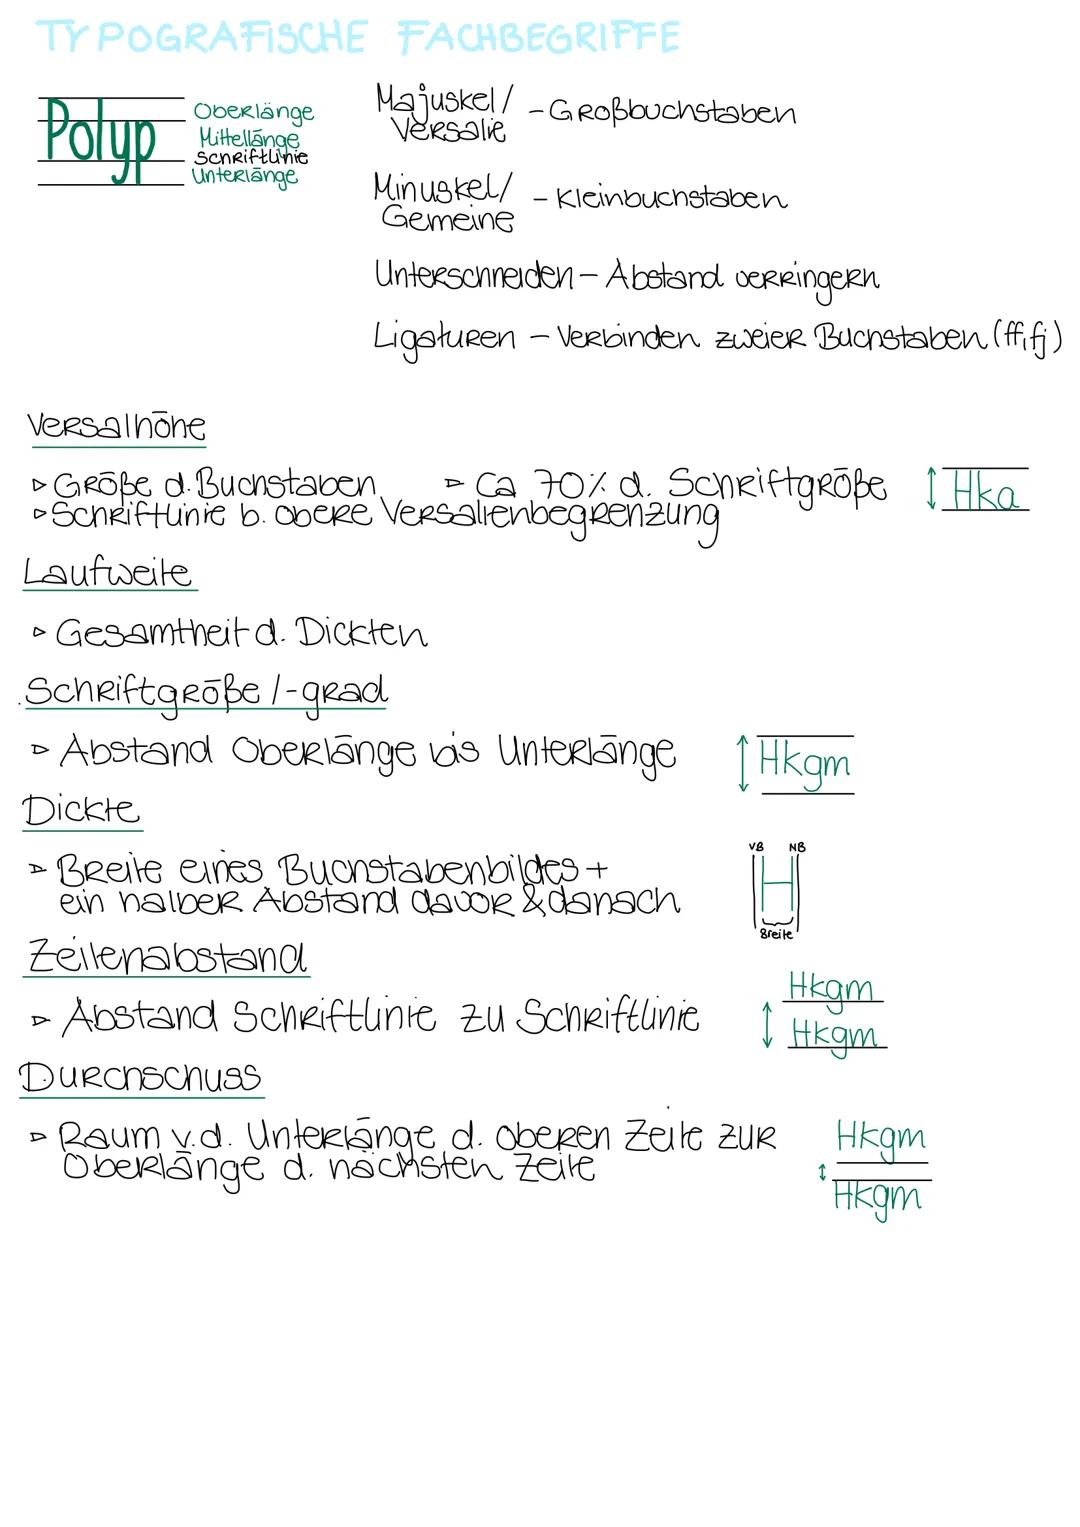 TYPOGRAFISCHE FACHBEGRIFFE
Polyp
Oberlänge
Mittellänge
Schriftlinie
Unterlänge
Majuskel/
Versalie
- Großbuchstaben
Minuskel/
Gemeine
- Kleinbuchstaben
Unterschneiden - Abstand verringern
Ligaturen - Verbinden zweier Buchstaben (ff, fj)
Versalhöhe
▹ Größe d. Buchstaben ▹ Ca 70% d. Schriftgröße
▹ Schriftlinie b. obere Versalienbegrenzung
Hka
Laufweite
▹ Gesamtheit d. Dickten
Schriftgröße /-grad
▹ Abstand Oberlänge bis Unterlänge
Hkgm
Dickte
▹ Breite eines Buchstabenbildes +
ein halber Abstand davor & danach
VB NB
H
Breite
Zeilenabstand
▹ Abstand Schriftlinie zu Schriftlinie
Hkgm
Hkgm
Durchschuss
▹ Raum v.d. Unterlänge d. oberen Zeile zur
Oberlänge d. nächsten Zeile
Hkgm
Hkgm